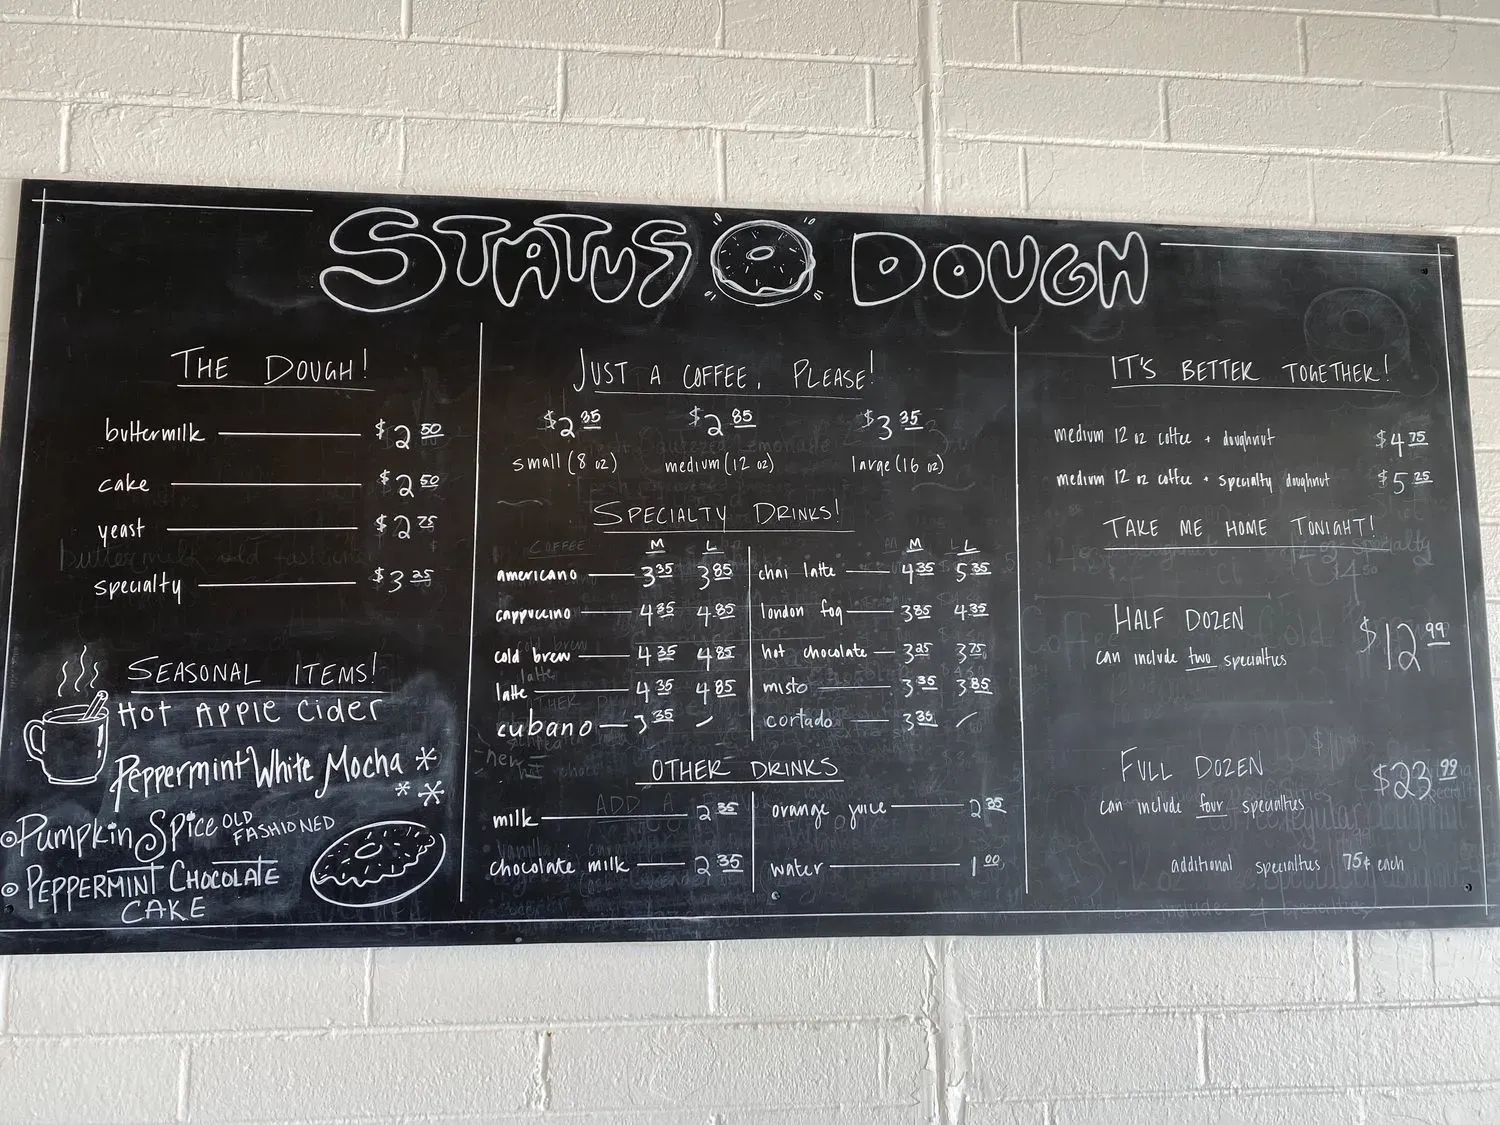 STATUS DOUGH
THE DOUGH!
buttermilk $2 50
cake $2 50
yeast $2 75
specialty $3 25
SEASONAL ITEMS!
Hot Apple Cider
Peppermint White Mocha
Pumpkin Spice OLD FASHIONED
PEPPERMINT CHOCOLATE
CAKE
JUST A COFFEE, PLEASE!
$2 35 $2 85 $3 35
small (8 oz) medium (12 oz) large (16 oz)
SPECIALTY DRINKS!
M L
americano 3 35 3 85
cappuccino 4 35 4 85
cold brew 4 35 4 85
latte 4 35 4 85
cubano 3 35
M L
chai latte 4 35 5 35
london fog 3 85 4 35
hot chocolate 3 25 3 75
misto 3 35 3 85
cortado 3 35
OTHER DRINKS
milk 2 35
chocolate milk 2 35
orange juice 2 35
water 1 00
IT'S BETTER TOGETHER!
medium 12 oz coffee + doughnut $4 75
medium 12 oz coffee + specialty doughnut $5 25
TAKE ME HOME TONIGHT!
HALF DOZEN $12 99
can include two specialties
FULL DOZEN $23 99
can include four specialties
additional specialties 75¢ each